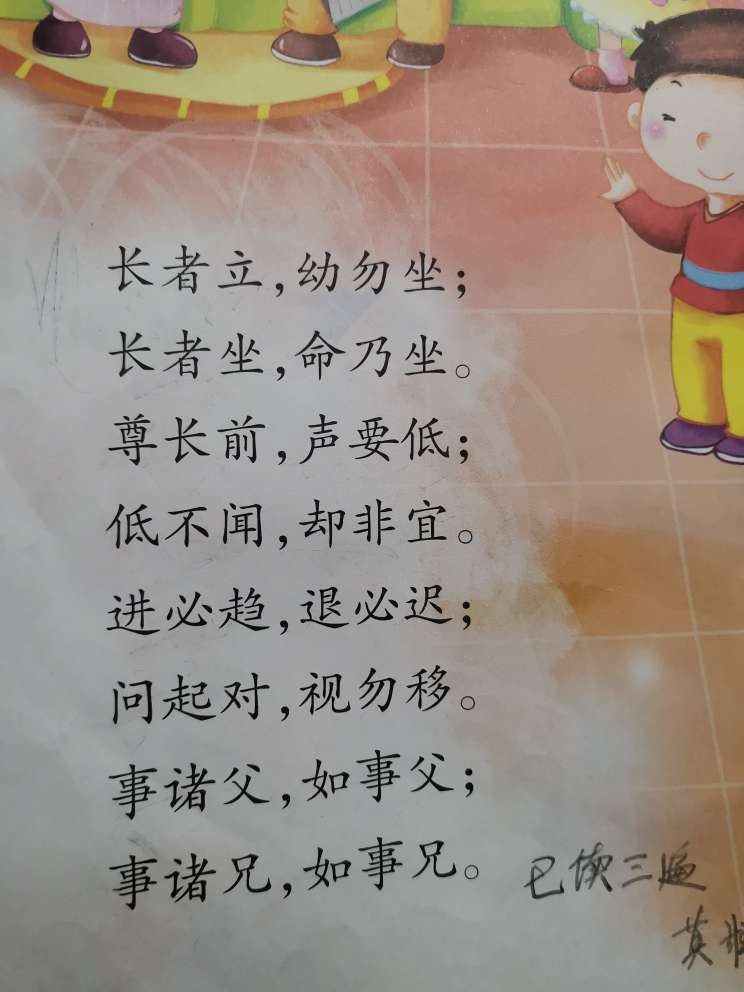 长者立,幼勿坐;
长者坐,命乃坐。
尊长前,声要低;
低不闻,却非宜。
进必趋,退必迟;
问起对,视勿移。
事诸父,如事父;
事诸兄,如事兄。
已读三遍
英